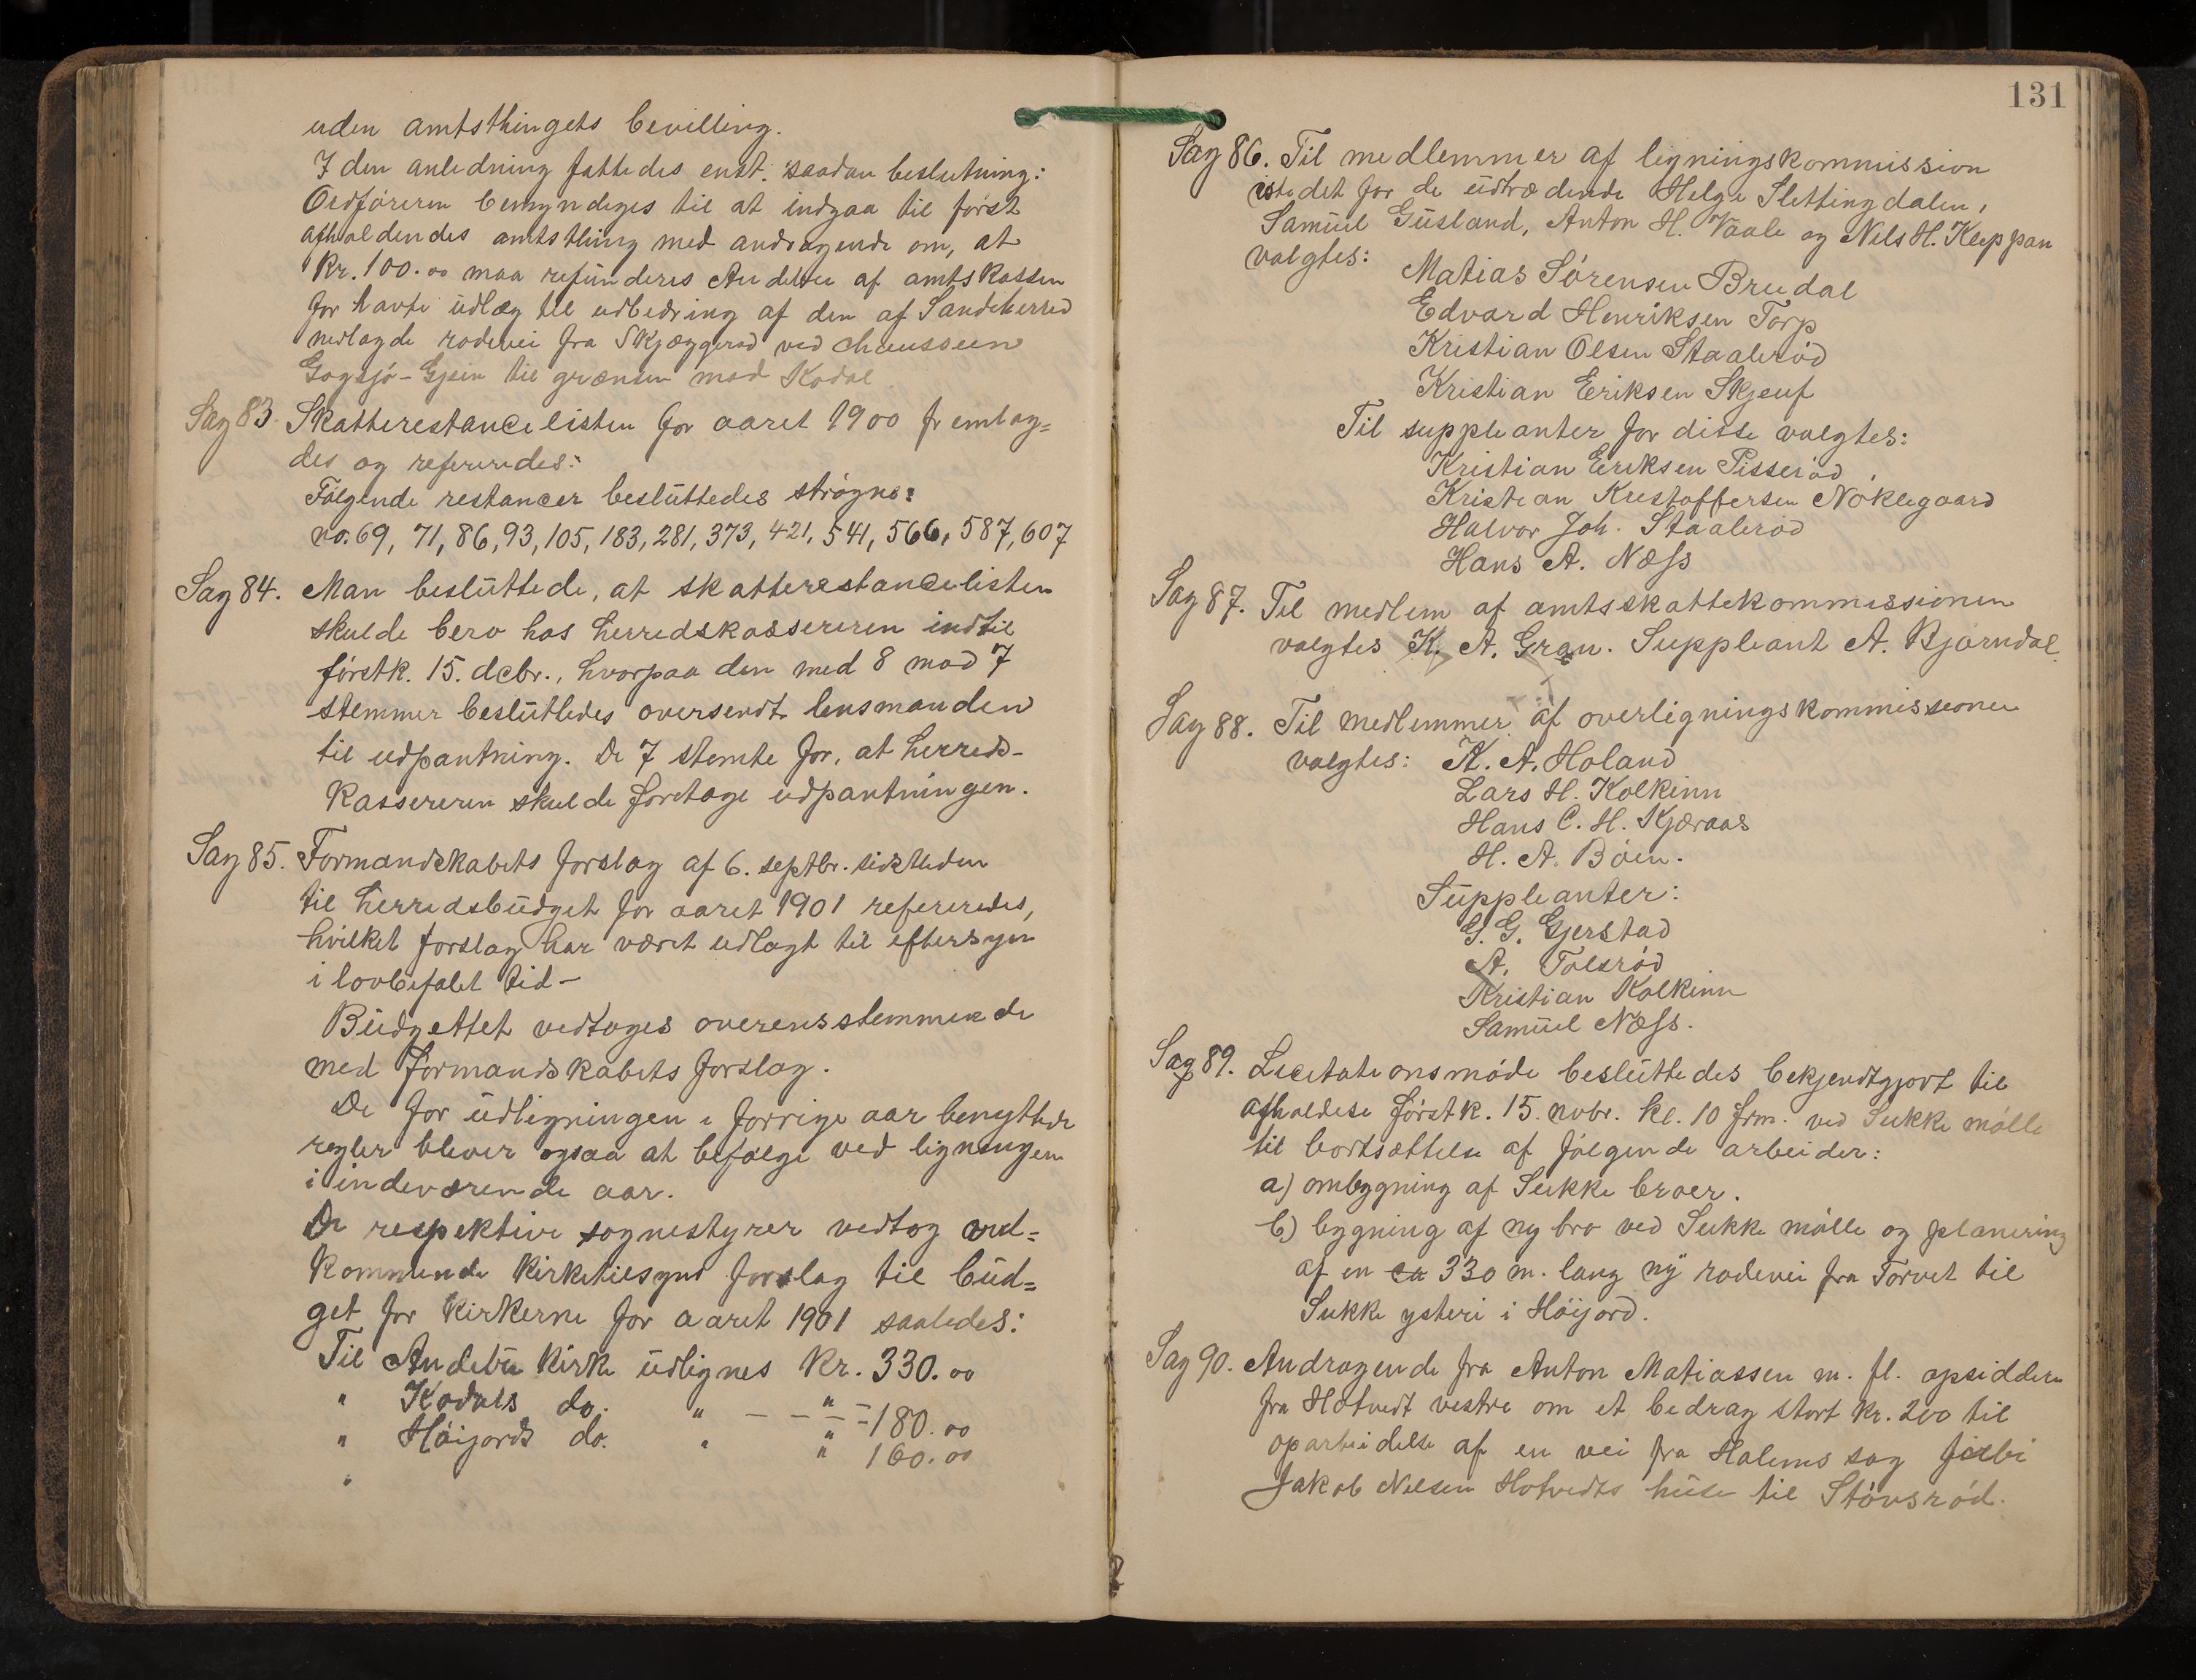 uden amtsthingets bevilling.
I den anledning fattedes enst. saadan beslutning:
Ordføreren bemyndiges til at indgaa til først
afholdendes amtsthing med andragende om, at
kr. 100.00 maa refunderes Andebu af amtskassen
for havte udlæg til udbedring af den af Sandeherred
nedlagde rodevei fra Skjæggerød ved chausseen
Gogsjø-Gjein til grænsen mod Kodal.
Sag 83. Skatterestancelisten for aaret 1900 fremlag=
des og refereredes:
Følgende restancer besluttedes strøgne:
no. 69, 71, 86, 93, 105, 183, 281, 373, 421, 541, 566, 587, 607
Sag 84. Man besluttede, at skatterestancelisten
skulde bero hos herredskassereren indtil
førstk. 15. dcbr., hvorpaa den med 8 mod 7
stemmer besluttedes oversendt lensmanden
til udpantning. De 7 stemte for, at herreds-
kassereren skulde foretage udpantningen.
Sag 85. Formandskabets forslag af 6. septbr. sidstleden
til herredsbudget for aaret 1901 refereredes,
hvilket forslag har været udlagt til eftersyn
i lovbefalet tid-
Budgettet vedtoges overensstemmende
med formandskabets forslag.
De for udligningen i forrige aar benyttede
regler blever ogsaa at befølge ved ligningen
i indeværende aar.
De respektive sognestyrer vedtog ved=
kommende kirketilsyns forslag til bud=
get for kirkerne for aaret 1901 saaledes:
Til Andebu kirke udlignes kr. 330.00
" Kodals do. " — — " — 180.00
" Høijords do. " " 160.00
"
131
Sag 86. Til medlemmer af ligningskommission
istedet for de udtrædende Helge Slettingdalen,
Samuel Gusland, Anton H. Vaale og Nils H. Kleppan
valgtes:
Matias Sørensen Bredal
Edvard Henriksen Torp
Kristian Olsen Staalerød
Kristian Eriksen Skjeuf
Til suppleanter for disse valgtes:
Kristian Eriksen Pisserød
Kristian Kristoffersen Nøklegaard
Halvor Joh. Staalerød
Hans A. Næss
Sag 87. Til medlem af amtsskattekommissionen
valgtes K. A. Gran. Suppleant A. Bjørndal.
Sag 88. Til medlemmer af overligningskommissionen
valgtes: K. A. Holand
Lars H. Kolkinn
Hans C. H. Kjæraas
H. A. Bøen.
Suppleanter:
G. G. Gjerstad
A. Tolsrød
Kristian Kolkinn
Samuel Næss.
Sag 89. Licitationsmøde besluttedes bekjendtgjort til
afholdelse førstk. 15. nvbr. kl. 10 frm. ved Sukke mølle
til bortsættelse af følgende arbeider:
a) ombygning af Sukke broer.
b) bygning af ny bro ved Sukke mølle og planering
af en ca 330 m. lang ny rodevei fra Torvet til
Sukke ysteri i Høijord.
Sag 90. Andragende fra Anton Matiassen m. fl. opsiddere
fra Hotvedt vestre om et bedrag stort kr. 200 til
oparbeidelse af en vei fra Holems sag forbi
Jakob Nilsen Hotvedts huse til Støvsrød.